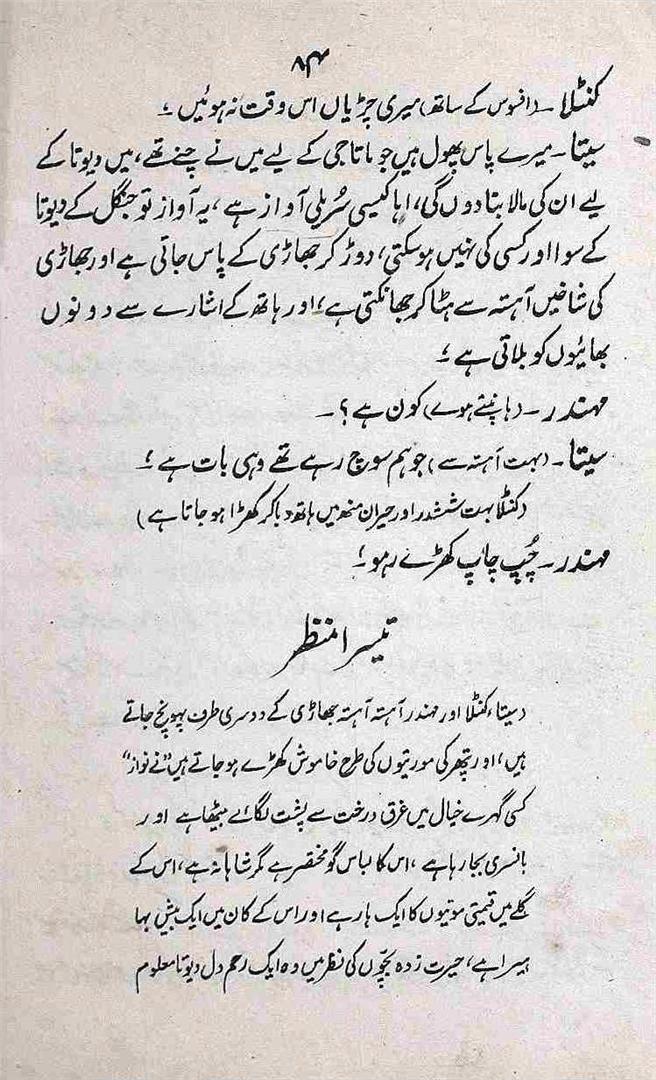 ۸۴
کنٹلا ۔ (افسوس کے ساتھ) میری چڑیاں اس وقت نہ ہوئیں ؛
سیتا ۔ میرے پاس پھول ہیں جو ماتاجی کے لیے میں نے چنے تھے، میں دیوتا کے
لیے ان کی مالا بنا دوں گی، اہا کیسی سُریلی آواز ہے، یہ آواز تو جنگل کے دیوتا
کے سوا اور کسی کی نہیں ہو سکتی، دوڑ کر جھاڑی کے پاس جاتی ہے اور جھاڑی
کی شاخیں آہستہ سے ہٹا کر جھانکتی ہے، اور ہاتھ کے اشارے سے دونوں
بھائیوں کو بلاتی ہے ؛
مہندر ۔ (ہانپتے ہوے) کون ہے ؟ ۔
سیتا ۔ (بہت آہستہ سے) جو ہم سوچ رہے تھے وہی بات ہے ؛
(کنٹلا بہت ششدر اور حیران منھ میں ہاتھ دبا کر کھڑا ہو جاتا ہے)
مہندر ۔ چُپ چاپ کھڑے رہو ؛
تیسرا منظر
(سیتا، کنٹلا اور مہندر آہستہ آہستہ جھاڑی کے دوسری طرف پہونچ جاتے
ہیں، اور پتھر کی مورتیوں کی طرح خاموش کھڑے ہو جاتے ہیں "نے نواز"
کسی گہرے خیال میں غرق درخت سے پشت لگائے بیٹھا ہے اور
بانسری بجا رہا ہے، اس کا لباس گو مختصر ہے مگر شاہانہ ہے، اس کے
گلے میں قیمتی موتیوں کا ایک ہار ہے اور اس کے کان میں ایک بیش بہا
ہیرا ہے، حیرت زدہ بچّوں کی نظر میں وہ ایک رحم دل دیوتا معلوم